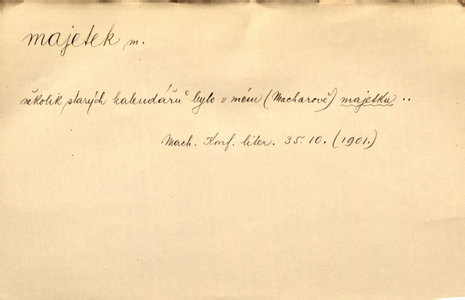 majetek m.
několik starých kalendářů bylo v mém (Macharově) majetku ..
Mach. Konf. liter. 35.10. (1901.)